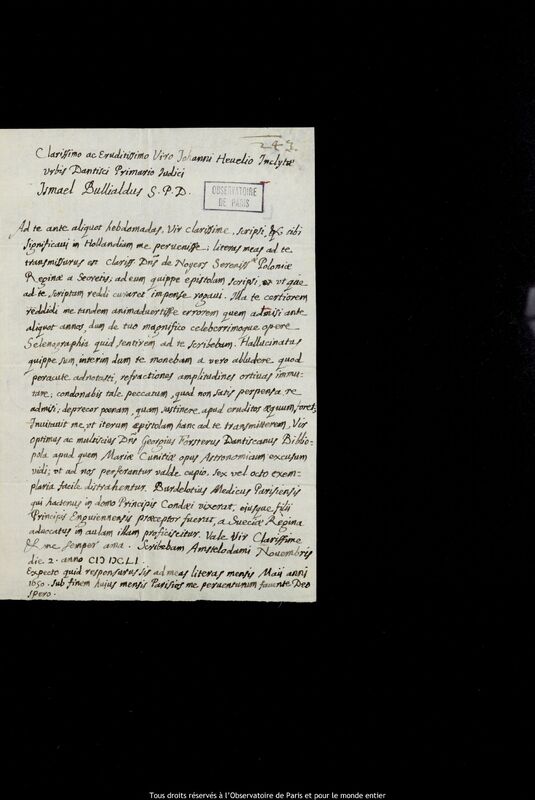 243.
Clarissimo ac Eruditissimo Viro Johanni Hevelio Inclytæ
urbis Dantisci Primario Judici
Ismael Bullialdus S. P. D.
OBSERVATOIRE
DE PARIS
Ad te ante aliquot hebdomadas, Vir clarissime, scripsi, & tibi
significavi in Hollandiam me pervenisse; literas meas ad te
transmissurus est Clariss. Dns de Noyers Sereniss.æ Poloniæ
Reginæ a Secretis, ad eum quippe epistolam scripsi, ut quæ
ad te scriptam reddi curaret impense rogavi. Illa te certiorem
reddidi me tandem animadvertisse errorem quem admisi ante
aliquot annos, dum de tuo magnifico celeberrimoque opere
Selenographia quid sentirem ad te scribebam. Hallucinatus
quippe sum, interim dum te monebam a vero alludere quod
peracute adnotasti, refractiones amplitudines ortivas immu-
tare; condonabis tale peccatum, quod non satis perpensa re
admisi; deprecor pœnam, quam sustinere apud eruditos æquum foret.
Invitavit me, ut iterum epistolam hanc ad te transmitterem, Vir
optimus ac multiscius Dns Georgius Forsterus Dantiscanus Biblio-
pola apud quem Mariæ Cunitiæ opus Astronomicum excusum
vidi; ut ad nos perferantur valde cupio, sex vel octo exem-
plaria facile distrahentur. Burdelotius Medicus Parisiensis
qui hactenus in domo Principis Condæi vixerat, ejusque filii
Principis Enguiennensis præceptor fuerat, a Sueciæ Regina
advocatus in aulam illam proficiscitur. Vale Vir Clarissime
& me semper ama. Scribebam Amstelodami Novembris
die 2. anno CIƆ IƆCLI.
Expecto quid responsurus sis ad meas literas mensis Maii anni
1650. sub finem hujus mensis Parisios me perventurum favente Deo
spero.
Tous droits réservés à l'Observatoire de Paris et pour le monde entier